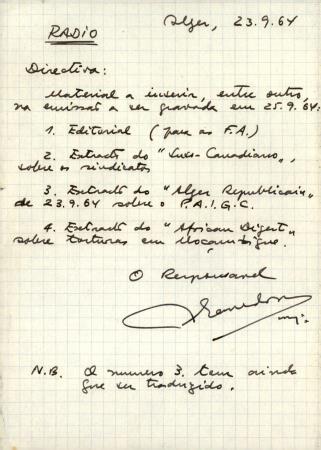 Alger, 23.9.64
RADIO
Directiva:
Material a inserir, entre outro,
na emissão a ser gravada em 25.9.64:
1. Editorial (para as F.A.)
2. Extracto do "Luso-Canadiano",
sobre os sindicatos
3. Extracto do "Alger Republicain"
de 23.9.64 sobre o P.A.I.G.C.
4. Extracto do "African Digest"
sobre torturas em Moçambique.
O Responsavel
N.B. O numero 3. tem ainda
que ser traduzido.